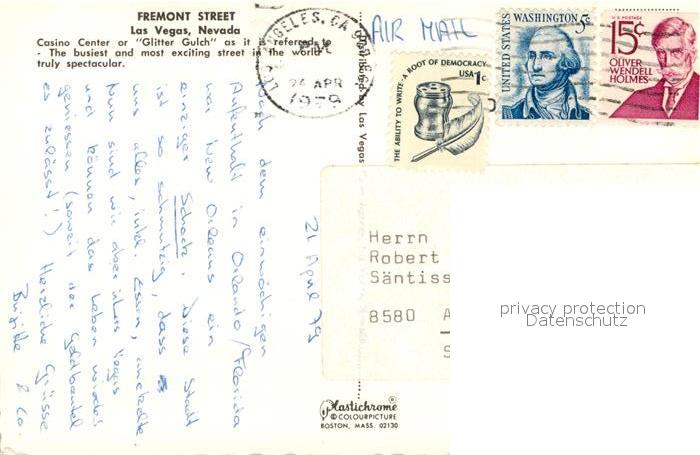 FREMONT STREET
Las Vegas, Nevada
Casino Center or "Glitter Gulch" as it is referred to
- The busiest and most exciting street in the world -
truly spectacular.
LOS ANGELES, CA
PM
24 APR
1979
AIR MAIL
THE ABILITY TO WRITE · A ROOT OF DEMOCRACY
USA 1c
UNITED STATES
WASHINGTON 5c
U.S. POSTAGE
15c
OLIVER
WENDELL
HOLMES
Las Vegas
21 April 79
Nach dem einwöchigen
Aufenthalt in Orlando/Florida
war New Orleans ein
einziger Schock. Diese Stadt
ist so schmutzig, dass es
uns allen, inkl. Essen, anekelte.
Nun sind wir aber in Las Vegas
und können das Leben wieder
geniessen (soweit der Geldbeutel
es zulässt!) Herzliche Grüsse
Brigitte & Co.
Herrn
Robert
Säntiss
8580 A
S
privacy protection
Datenschutz
Plastichrome®
© COLOURPICTURE
BOSTON, MASS. 02130